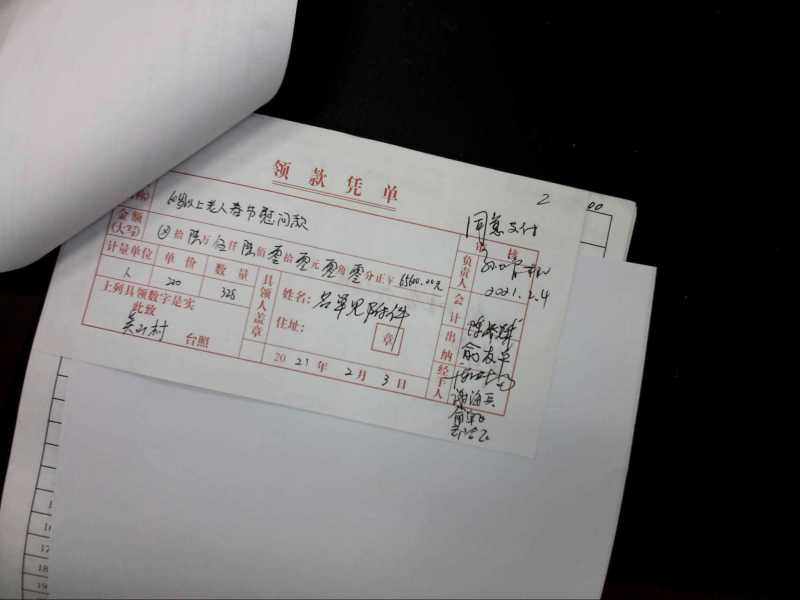 领款凭单
2
00
60岁以上老人春节慰问款
同意支付
金额
(大写)
拾陆万伍仟陆佰零拾零元零角零分正¥65600.00元
计量单位 单价 数量
人 200 328
上列具领数字是实
此致
吴山村 台照
具领人盖章
姓名：名单见附件
住址：
章
2021年2月3日
审核
负责人
2021.2.4
会计
出纳
经手人
17
18
19